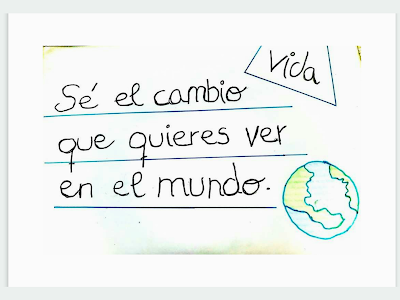 Vida
Sé el cambio
que quieres ver
en el mundo.